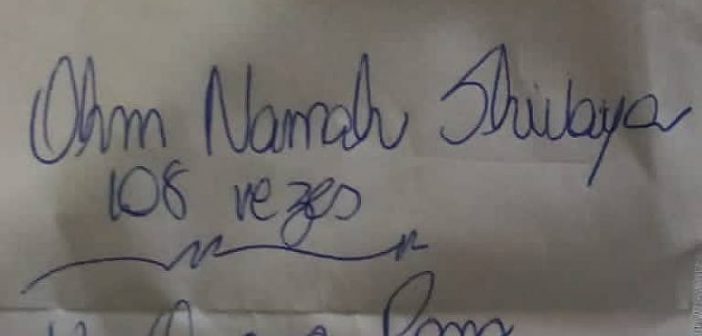 Ohm Namah Shivaya
108 vezes